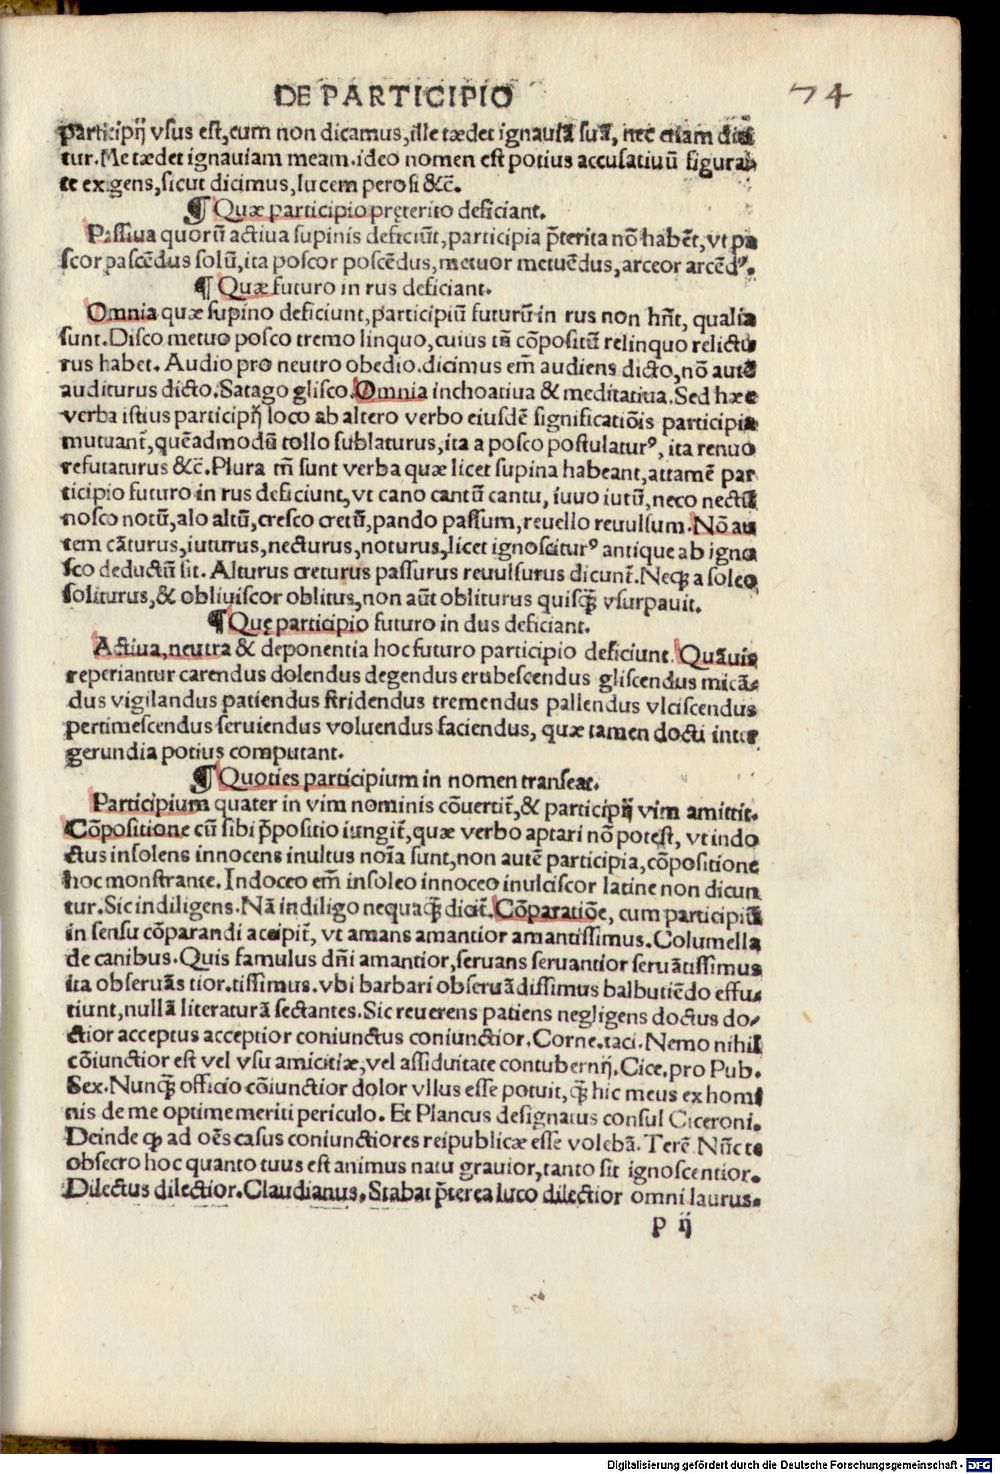 DE PARTICIPIO 74
participij vsus est,cum non dicamus,ille tædet ignauiā suā, nec etiam dici
tur.Me tædet ignauiam meam.ideo nomen est potius accusatiuū figura-
te exigens,sicut dicimus,lucem perosi &c̄.
¶ Quæ participio pręterito deficiant.
Passiua quorū actiua supinis deficiūt,participia p̄terita nō habēt,vt pa
scor pascēdus solū,ita poscor poscēdus,metuor metuēdus,arceor arcēdꝰ.
¶ Quæ futuro in rus deficiant.
Omnia quæ supino deficiunt,participiū futurū in rus non hn̄t, qualia
sunt.Disco metuo posco tremo linquo,cuius tn̄ cōpositū relinquo relictu
rus habet. Audio pro neutro obedio.dicimus em̄ audiens dicto,nō autē
auditurus dicto.Satago glisco.Omnia inchoatiua & meditatiua.Sed hæc
verba istius participij loco ab altero verbo eiusdē significatiōis participia
mutuant̄,quēadmodū tollo sublaturus,ita a posco postulaturꝰ, ita renuo
refutaturus &c̄.Plura tn̄ sunt verba quæ licet supina habeant,attamē par
ticipio futuro in rus deficiunt,vt cano cantū cantu, iuuo iutū,neco nectū
nosco notū,alo altū,cresco cretū,pando passum,reuello reuulsum.Nō au
tem cāturus,iuturus,necturus,noturus,licet ignosciturꝰ antique ab igno
sco deductū sit. Alturus creturus passurus reuulsurus dicunt̄.Neqꝫ a soleo
soliturus,& obliuiscor oblitus,non aūt obliturus quisqꝫ̄ vsurpauit.
¶ Quę participio futuro in dus deficiant.
Actiua,neutra & deponentia hoc futuro participio deficiunt.Quāuis
reperiantur carendus dolendus degendus erubescendus gliscendus micā-
dus vigilandus patiendus stridendus tremendus pallendus vlciscendus
pertimescendus seruiendus voluendus faciendus, quæ tamen docti inter
gerundia potius computant.
¶ Quoties participium in nomen transeat.
Participium quater in vim nominis cōuertit̄,& participij vim amittit.
Cōpositione cū sibi p̄positio iungit̄,quæ verbo aptari nō potest, vt indo
ctus insolens innocens inultus noīa sunt,non autē participia,cōpositione
hoc monstrante.Indoceo em̄ insoleo innoceo inulciscor latine non dicun
tur.Sic indiligens.Nā indiligo nequaqꝫ̄ dicit̄.Cōparatiōe, cum participiū
in sensu cōparandi accipit̄, vt amans amantior amantissimus.Columella
de canibus.Quis famulus dn̄i amantior,seruans seruantior seruātissimus
ita obseruās tior.tissimus.vbi barbari obseruādissimus balbutiēdo effu-
tiunt,nullā literaturā sectantes.Sic reuerens patiens negligens doctus do-
ctior acceptus acceptior coniunctus coniunctior.Corne.taci.Nemo nihil
cōiunctior est vel vsu amicitiæ,vel assiduitate contubernij.Cice.pro Pub.
Sex.Nunqꝫ̄ officio cōiunctior dolor vllus esse potuit,qꝫ̄ hic meus ex homi
nis de me optime meriti periculo. Et Plancus designatus consul Ciceroni.
Deinde ꝙ ad oēs casus coniunctiores reipublicæ esse volebā. Terē Nūc te
obsecro hoc quanto tuus est animus natu grauior,tanto sit ignoscentior.
Dilectus dilectior.Claudianus.Stabat p̄terea luco dilectior omni laurus.
p ij
Digitalisierung gefördert durch die Deutsche Forschungsgemeinschaft - DFG